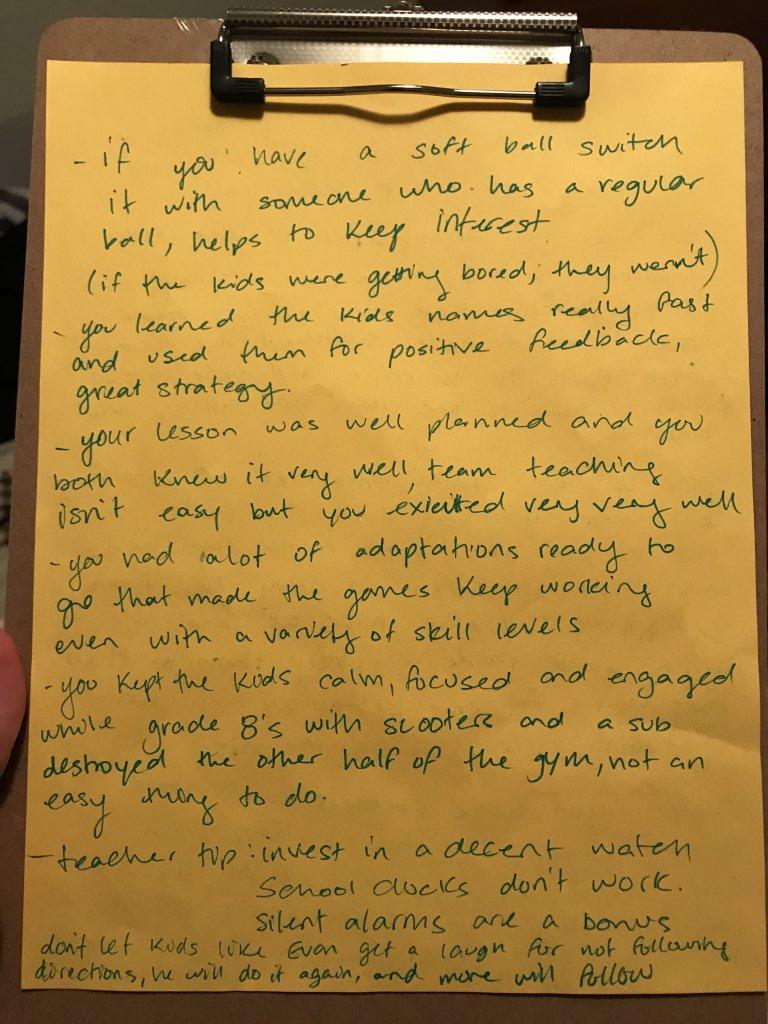 - if you have a soft ball switch
it with someone who has a regular
ball, helps to keep interest
(if the kids were getting bored, they wern't)
- you learned the kids names really fast
and used them for positive feedback,
great strategy.
- your lesson was well planned and you
both knew it very well, team teaching
isn't easy but you very very well
- you had alot of adaptations ready to
go that made the games keep working
even with a variety of skill levels
- you kept the kids calm, focused and engaged
whole grade 8's with scooters and a sub
destroyed the other half of the gym, not an
easy thing to do.
- teacher tip: invest in a decent watch
School clocks don't work.
Silent alarms are a bonus
don't let kids like Evan get a laugh for not following
directions, he will do it again, and more will follow